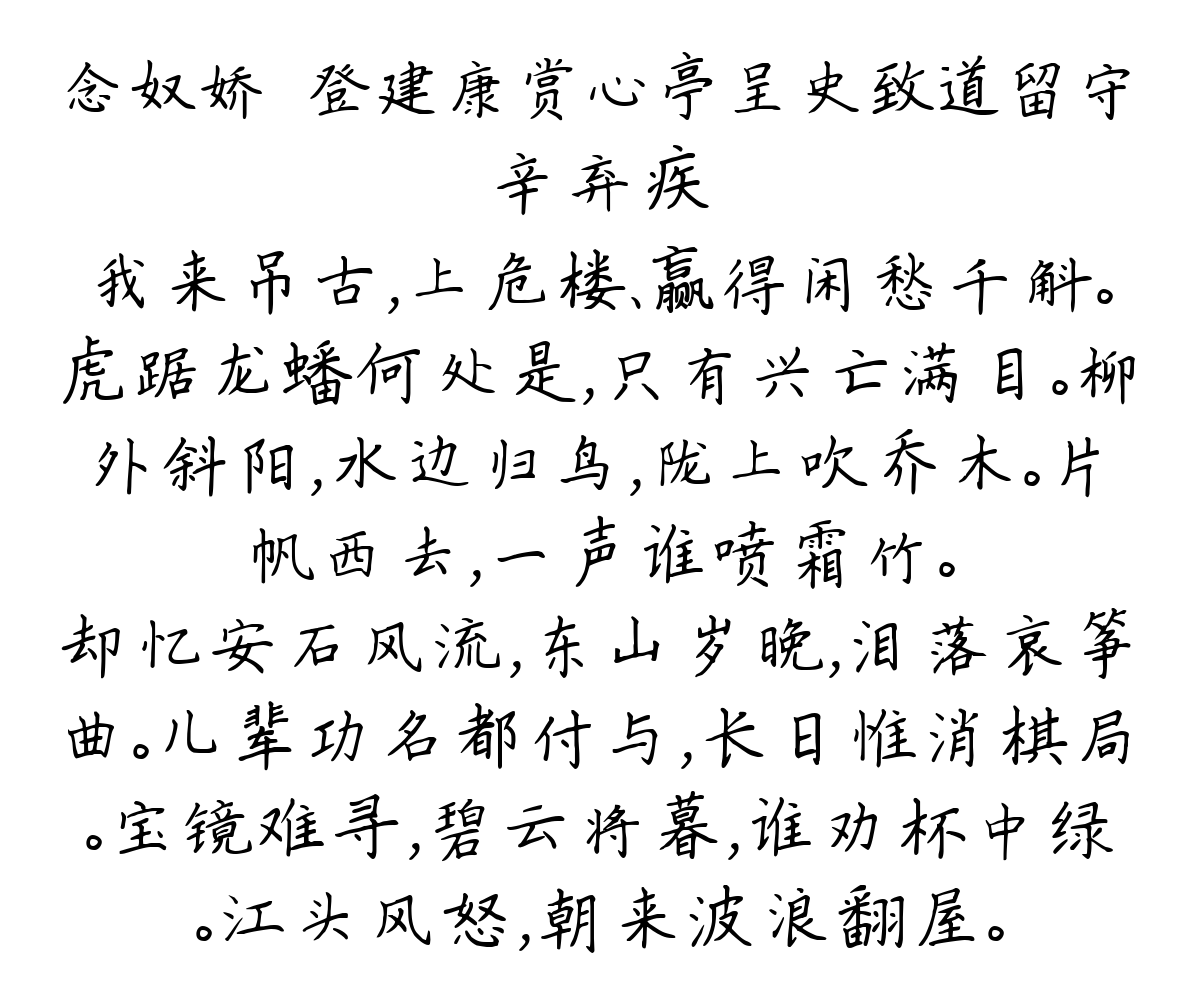 念奴娇 登建康赏心亭呈史致道留守
辛弃疾
我来吊古,上危楼、赢得闲愁千斛。
虎踞龙蟠何处是,只有兴亡满目。柳
外斜阳,水边归鸟,陇上吹乔木。片
帆西去,一声谁喷霜竹。
却忆安石风流,东山岁晚,泪落哀筝
曲。儿辈功名都付与,长日惟消棋局
。宝镜难寻,碧云将暮,谁劝杯中绿
。江头风怒,朝来波浪翻屋。